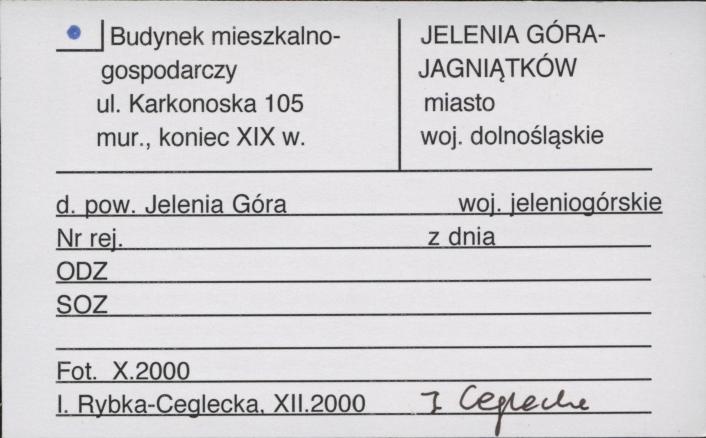 Budynek mieszkalno-
gospodarczy
ul. Karkonoska 105
mur., koniec XIX w.
JELENIA GÓRA-
JAGNIĄTKÓW
miasto
woj. dolnośląskie
d. pow. Jelenia Góra woj. jeleniogórskie
Nr rej. z dnia
ODZ
SOZ
Fot. X.2000
I. Rybka-Ceglecka, XII.2000 I Ceglecka